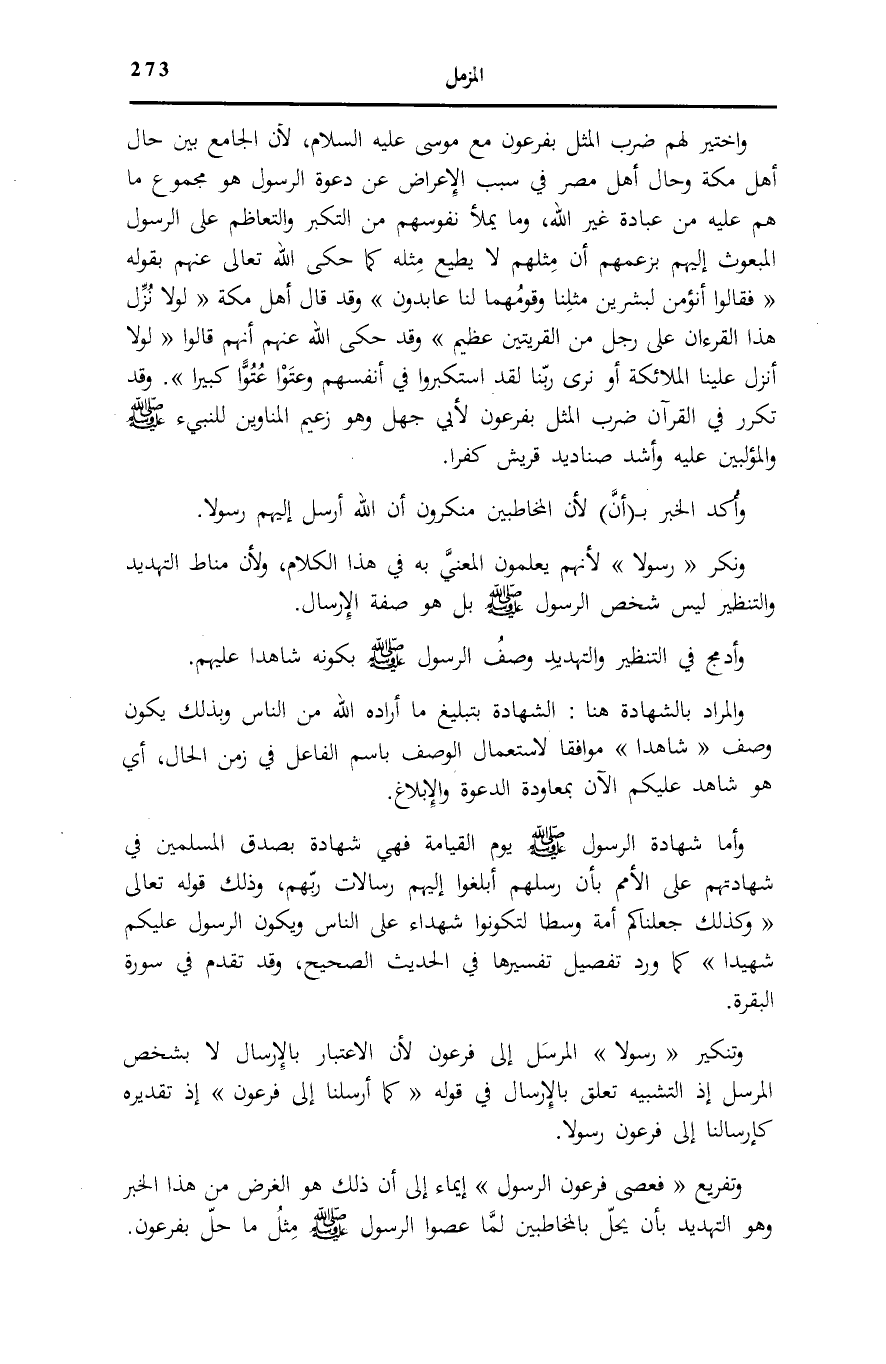 المزمل 273
واختير لهم ضرب المثل بفرعون مع موسى عليه السلام، لأن الجامع بين حال
أهل مكة وحال أهل مصر في سبب الإعراض عن دعوة الرسول هو مجموع ما
هم عليه من عبادة غير الله، وما يملأ نفوسهم من التكبر والتعاظم على الرسول
المبعوث إليهم بزعمهم أن مِثلهم لا يطيع مِثله كما حكى الله تعالى عنهم بقوله
« فقالوا أنؤمن لبشرين مثلِنا وقومُهما لنا عابدون » وقد قال أهل مكة « لولا نُزِّل
هذا القرءان على رجل من القريتين عظيم » وقد حكى الله عنهم أنهم قالوا « لولا
أنزل علينا الملائكة أو نرى ربّنا لقد استكبروا في أنفسهم وعتَوْا عُتُوًّا كبيرا ». وقد
تكرر في القرآن ضرب المثل بفرعون لأبي جهل وهو زعيم المناوين للنبيء ﷺ
والمؤلبين عليه وأشد صناديد قريش كفرا.
وأُكد الخبر بـ(أنَّ) لأن المخاطبين منكرون أن الله أرسل إليهم رسولا.
ونكر « رسولا » لأنهم يعلمون المعنيَّ به في هذا الكلام، ولأن مناط التهديد
والتنظير ليس شخص الرسول ﷺ بل هو صفة الإرسال.
وأدمج في التنظير والتهديدِ وصفُ الرسول ﷺ بكونه شاهدا عليهم.
والمراد بالشهادة هنا : الشهادة بتبليغ ما أراده الله من الناس وبذلك يكون
وصف « شاهدا » موافقا لاستعمال الوصف باسم الفاعل في زمن الحال، أي
هو شاهد عليكم الآن بمعاودة الدعوة والإبلاغ.
وأما شهادة الرسول ﷺ يوم القيامة فهي شهادة بصدق المسلمين في
شهادتهم على الأمم بأن رسلهم أبلغوا إليهم رسالات ربّهم، وذلك قوله تعالى
« وكذلك جعلناكم أمة وسطا لتكونوا شهداء على الناس ويكون الرسول عليكم
شهيدا » كما ورد تفصيل تفسيرها في الحديث الصحيح، وقد تقدم في سورة
البقرة.
وتنكير « رسولا » المرسَل إلى فرعون لأن الاعتبار بالإرسال لا بشخص
المرسل إذ التشبيه تعلق بالإرسال في قوله « كما أرسلنا إلى فرعون » إذ تقديره
كإرسالنا إلى فرعون رسولا.
وتفريع « فعصى فرعون الرسول » إيماء إلى أن ذلك هو الغرض من هذا الخبر
وهو التهديد بأن يحلّ بالمخاطبين لمَّا عصوا الرسول ﷺ مِثلُ ما حلّ بفرعون.